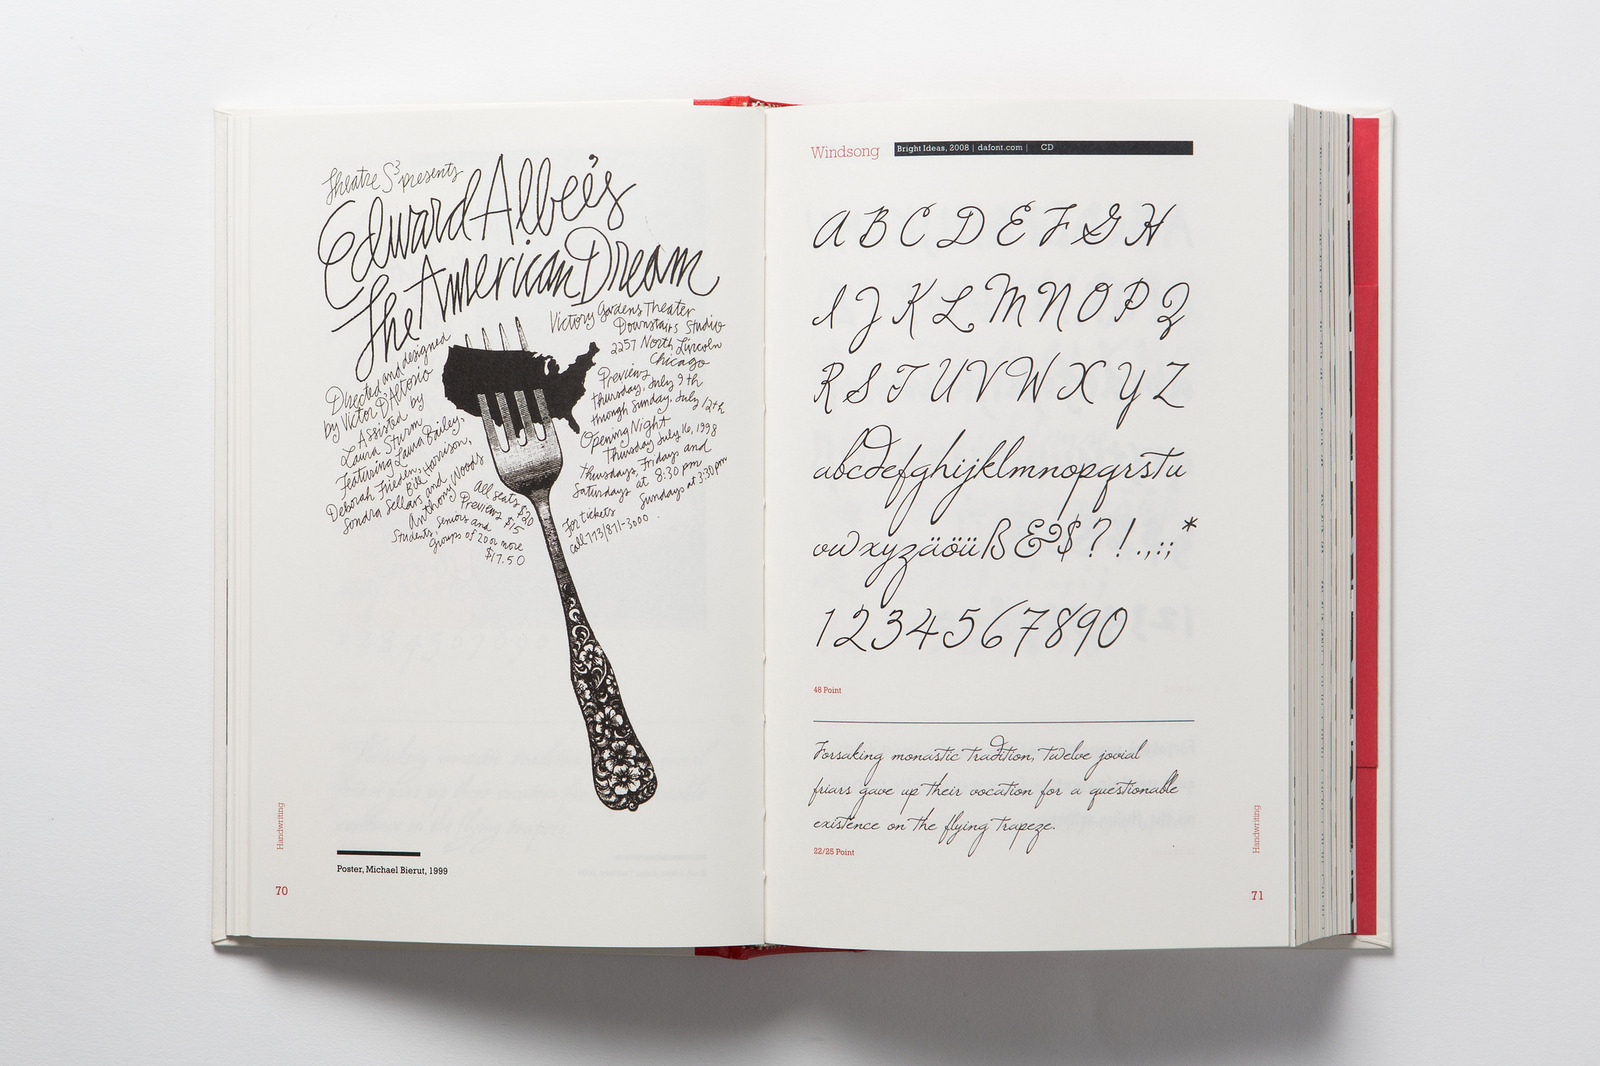 Theatre S³ presents
Edward Albee's
The American Dream
Directed and designed
by Victor D'Altorio
Assisted by
Laura Sturm
Featuring Laura Bailey,
Deborah Frieden,
Bill Harrison,
Sondra Sellars and
Anthony Woods
All seats $20
Previews $15
Students, Seniors and
groups of 20 or more
$17.50
Victory Gardens Theater
Downstairs Studio
2257 North Lincoln
Chicago
Previews
Thursday, July 9th
through Sunday, July 12th
Opening Night
Thursday July 16, 1998
Thursdays, Fridays and
Saturdays at 8:30 pm
Sundays at 3:30 pm
For tickets
call 773/871-3000.
Handwriting
Poster, Michael Bierut, 1999
70
Windsong
Bright Ideas, 2008 | dafont.com | CD
A B C D E F G H
I J K L M N O P Q
R S T U V W X Y Z
abcdefghijklmnopqrstu
vwxyzäöüß&$?!.,:;*
1234567890
48 Point
Forsaking monastic tradition, twelve jovial
friars gave up their vocation for a questionable
existence on the flying trapeze.
22/25 Point
Handwriting
71